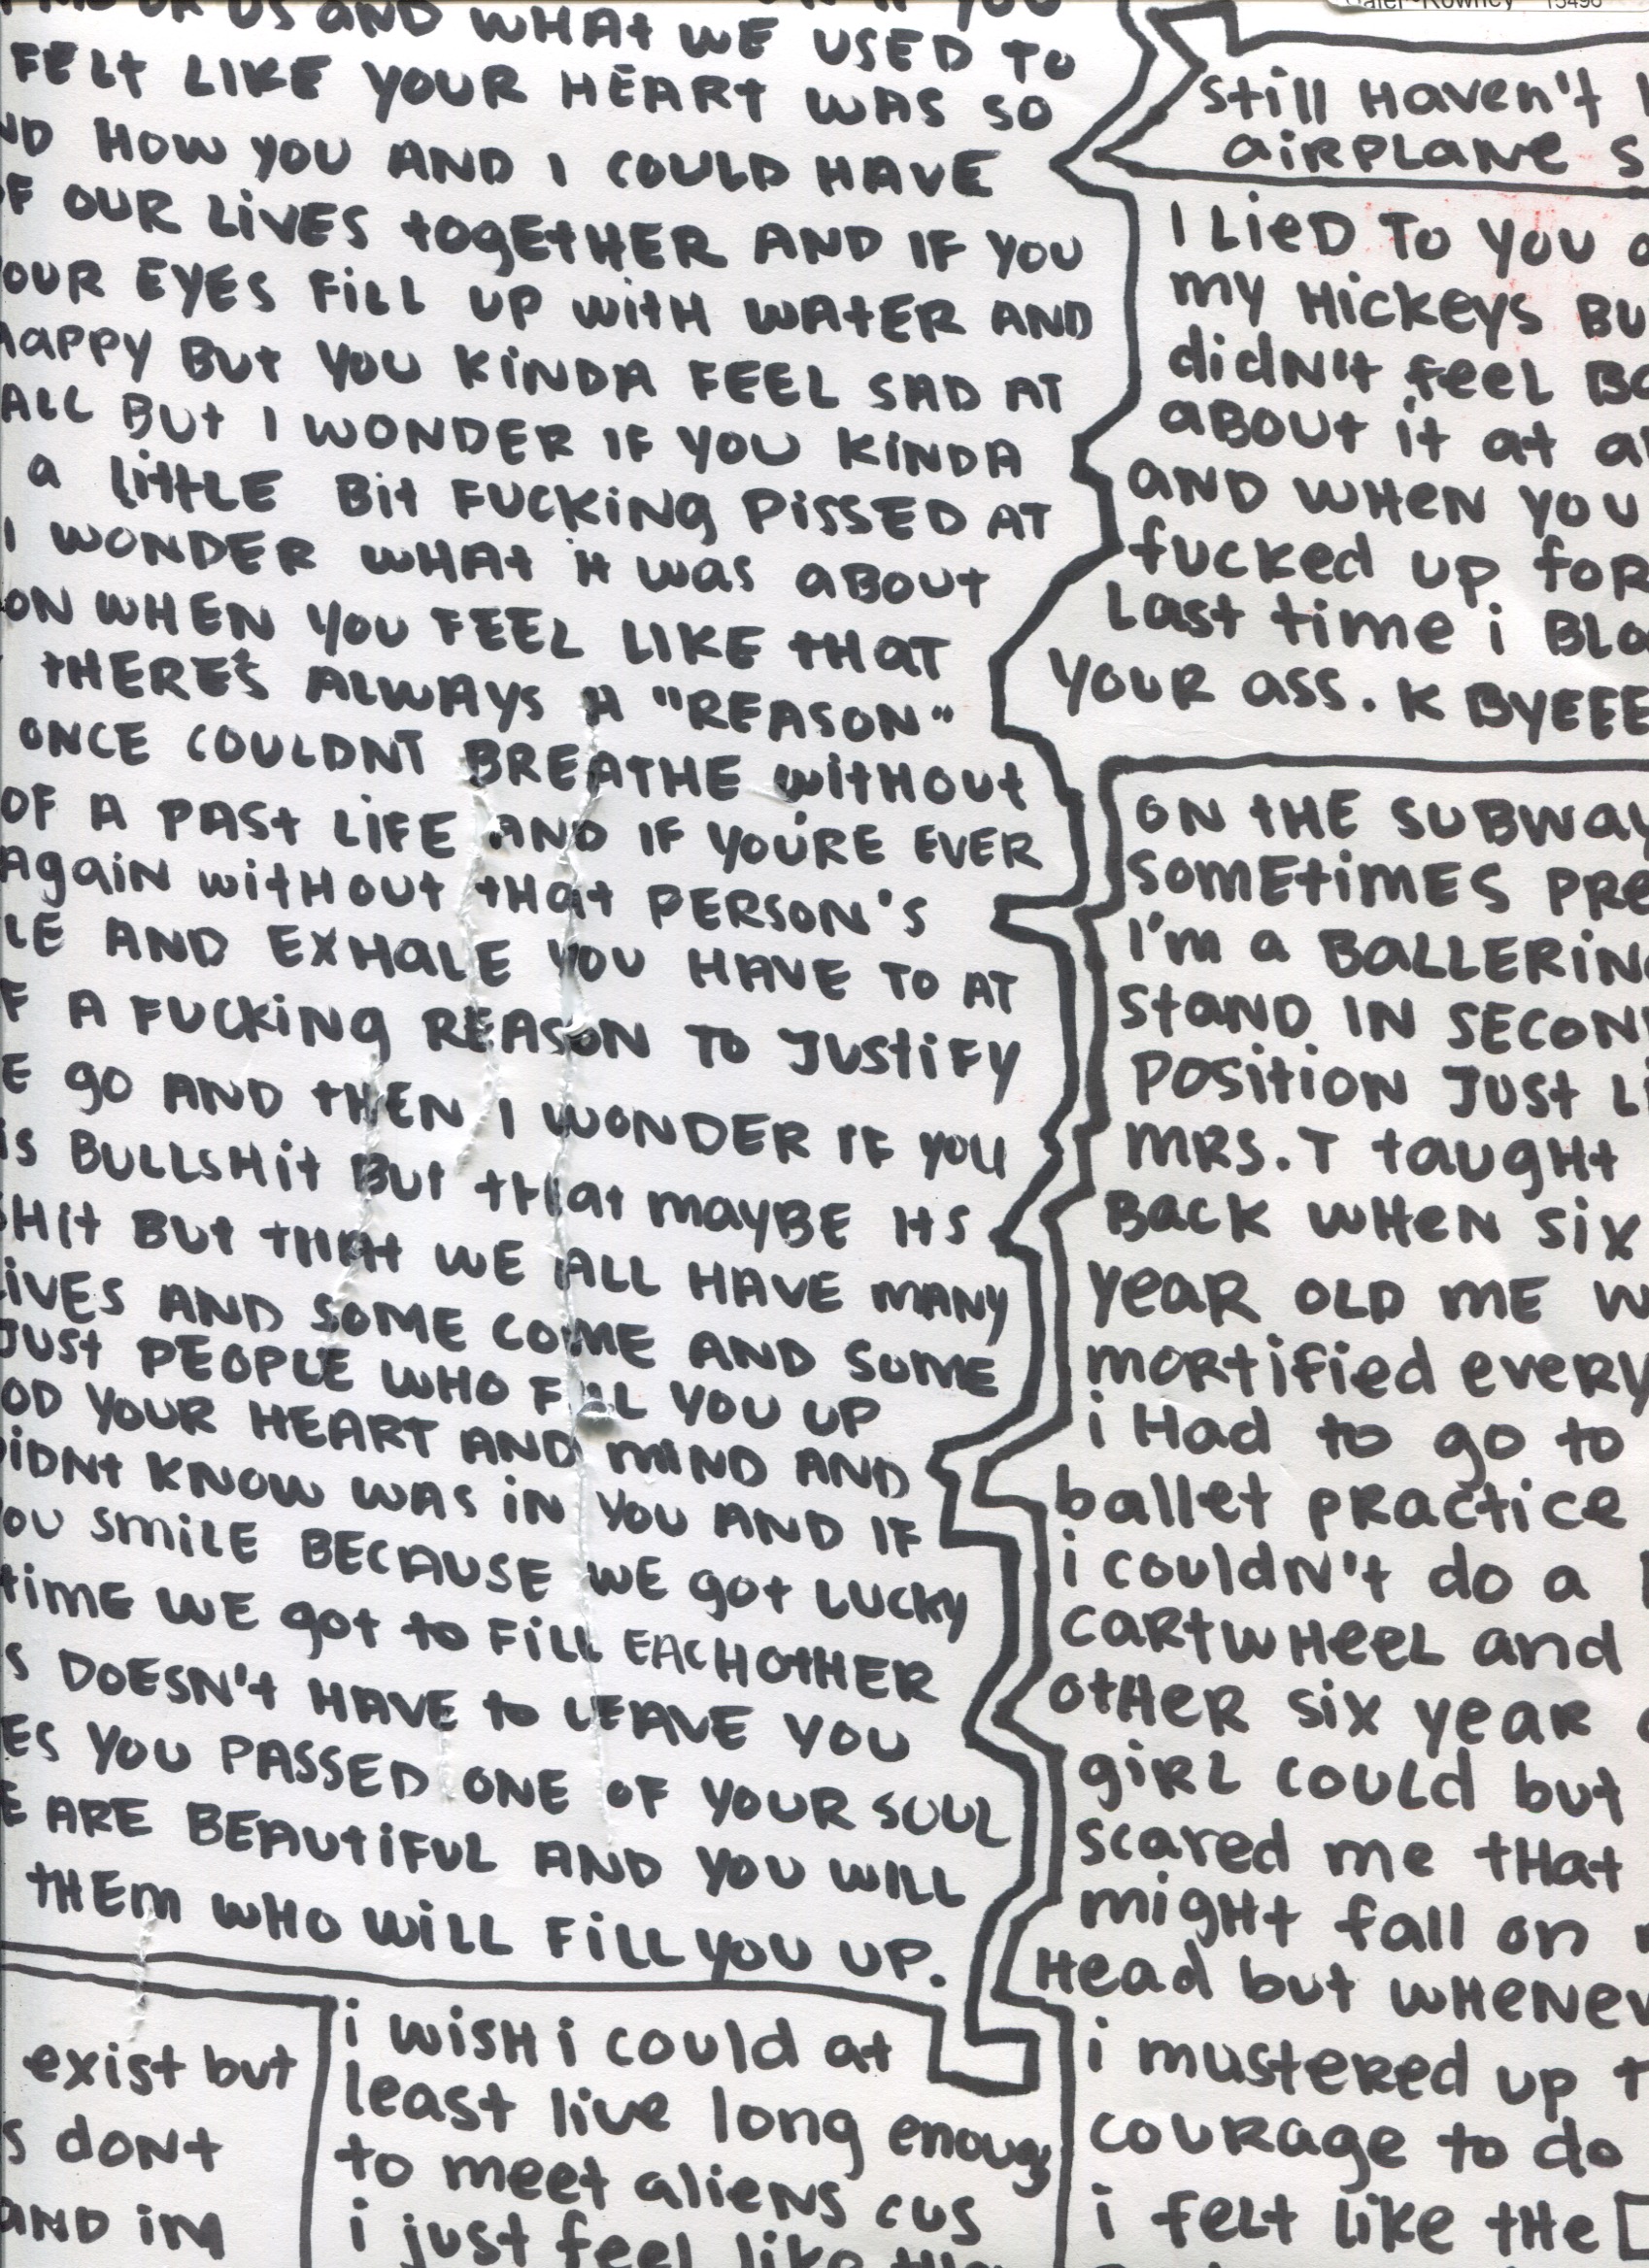 US AND WHAT WE USED TO
FELT LIKE YOUR HEART WAS SO
HOW YOU AND I COULD HAVE
OUR LIVES TOGETHER AND IF YOU
EYES FILL UP WITH WATER AND
HAPPY BUT YOU KINDA FEEL SAD AT
ALL BUT I WONDER IF YOU KINDA
a LITTLE BIT FUCKING PISSED AT
I WONDER WHAT it was about
ON WHEN YOU FEEL LIKE THAT
THERE'S ALWAYS A "REASON"
ONCE COULDNT BREATHE WITHOUT
OF A PAST LIFE AND IF YOU'RE EVER
AgaiN without that PERSON'S
LE AND EXHALE YOU HAVE TO AT
F A FUCKING REASON TO JUSTIFY
E gO AND THEN I WONDER IF YOU
is BULLSHIT BUT that maybe its
SHIT BUT THAT WE ALL HAVE MANY
LIVES AND SOME COME AND SOME
JUST PEOPLE WHO FILL YOU UP
OD YOUR HEART AND MIND AND
DIDNT KNOW WAS IN YOU AND IF
OU SMILE BECAUSE WE GOT LUCKY
TIME WE GOT TO FILL EACHOTHER
S DOESN'T HAVE TO LEAVE YOU
ES YOU PASSED ONE OF YOUR SOUL
E ARE BEAUTIFUL AND YOU WILL
THEM WHO WILL FILL YOU UP.
exist but
s dont
AND IN
i wish i could at
least live long enough
to meet aliens cus
i just feel like
Rowney 15496
still Haven't
airplane s
I LIED TO YOU
my Hickeys BU
didn't feel Ba
about it at a
AND WHEN YOU
fucked up for
Last time i BLO
YOUR ass. K BYEEE
ON tHE SUBWAY
SOMETIMES PRE
I'm a BALLERINA
STAND IN SECON
POSITION JUST LI
MRS. T taught
Back WHEN six
year OLD ME W
mortified every
i Had to go to
ballet practice
i couldn't do a
cartwheel and
other six year
girl could but
scared me that
might fall on
Head but whenev
i mustered up t
courage to do
i felt like the